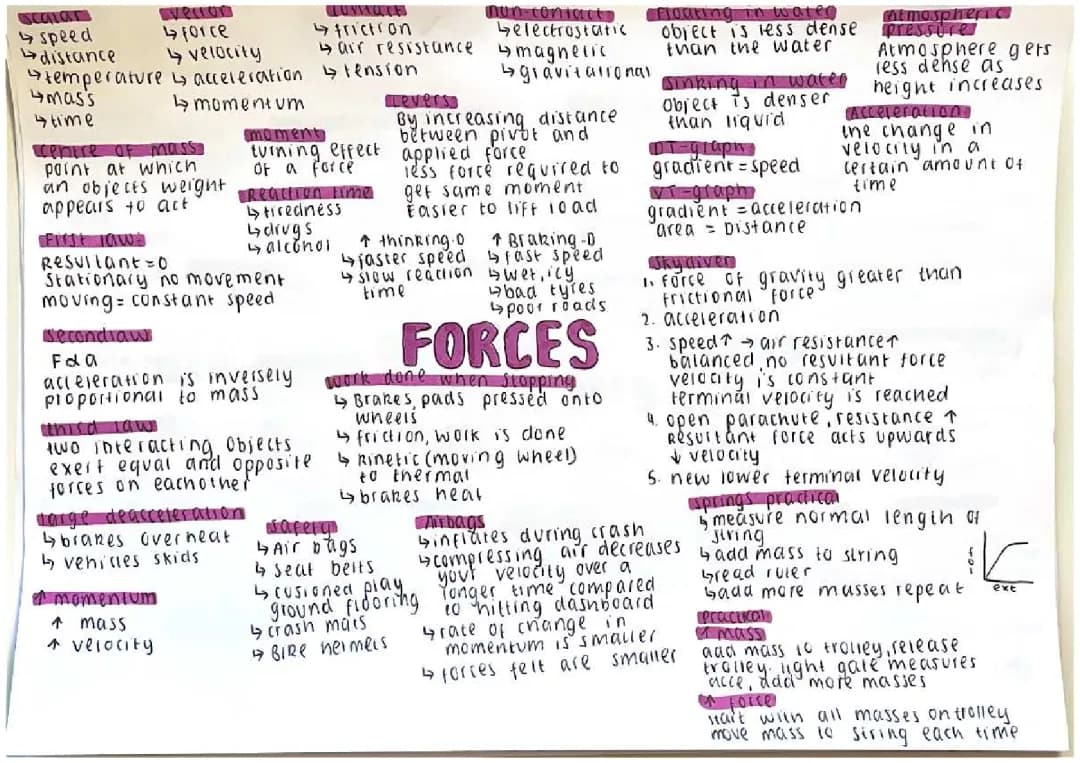 scalar
↳ speed
↳ distance
↳ temperature
↳ mass
↳ time
vector
↳ force
↳ velocity
↳ acceleration
↳ momentum
contact
↳ friction
↳ air resistance
↳ tension
non-contact
↳ electrostatic
↳ magnetic
↳ gravitational
Floating in water
object is less dense
than the water
Sinking in water
object is denser
than liquid
Atmospheric
pressure
Atmosphere gets
less dense as
height increases
centre of mass
point at which
an objects weight
appears to act
moment
turning effect
of a force
Levers
By increasing distance
between pivot and
applied force
less force required to
get same moment
Easier to lift load
DT-graph
gradient = speed
VT-graph
gradient = acceleration
area = Distance
Acceleration
the change in
velocity in a
certain amount of
time
Reaction time
↳ tiredness
↳ drugs
↳ alcohol
↑ thinking.D
↳ faster speed
↳ slow reaction
time
↑ Braking-D
↳ fast speed
↳ wet, icy
↳ bad tyres
↳ poor roads
First law:
Resultant = 0
Stationary no movement
moving = constant speed
second law
F α a
acceleration is inversely
proportional to mass
third law
two interacting objects
exert equal and opposite
forces on eachother
FORCES
work done when stopping
↳ Brakes, pads pressed onto
wheels
↳ friction, work is done
↳ kinetic (moving wheel)
to thermal
↳ brakes heat
Skydiver
1. force of gravity greater than
frictional force
2. acceleration
3. speed ↑ → air resistance ↑
balanced, no resultant force
velocity is constant
terminal velocity is reached
4. open parachute, resistance ↑
Resultant force acts upwards
↓ velocity
5. new lower terminal velocity
large deacceleration
↳ brakes overheat
↳ vehicles skids
↑ momentum
↑ mass
↑ velocity
safety
↳ Air bags
↳ seat belts
↳ cusioned play
ground flooring
↳ crash mats
↳ Bike helmets
Airbags
↳ inflates during crash
↳ compressing air decreases
your velocity over a
longer time compared
to hitting dashboard
↳ rate of change in
momentum is smaller
↳ forces felt are smaller
springs practical
↳ measure normal length of
string
↳ add mass to string
↳ read ruler
↳ add more masses repeat
ext
Practical
↑ mass
add mass to trolley, release
trolley. light gate measures
acce, add more masses
↑ force
start with all masses on trolley
move mass to string each time